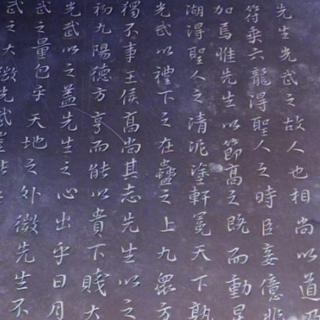 先生光武之故人也相尚以道
符乘六龍得聖人之時臣妾億兆
加焉惟先生以節高之既而動星
湖得聖人之清泥塗軒冕天下孰
光武以禮下之在蠱之上九眾方
獨不事王侯高尚其志先生以之
初九陽德方亨而能以貴下賤大
光武以之蓋先生之心出乎日月
武之量包乎天地之外微先生不
武之大微光武豈